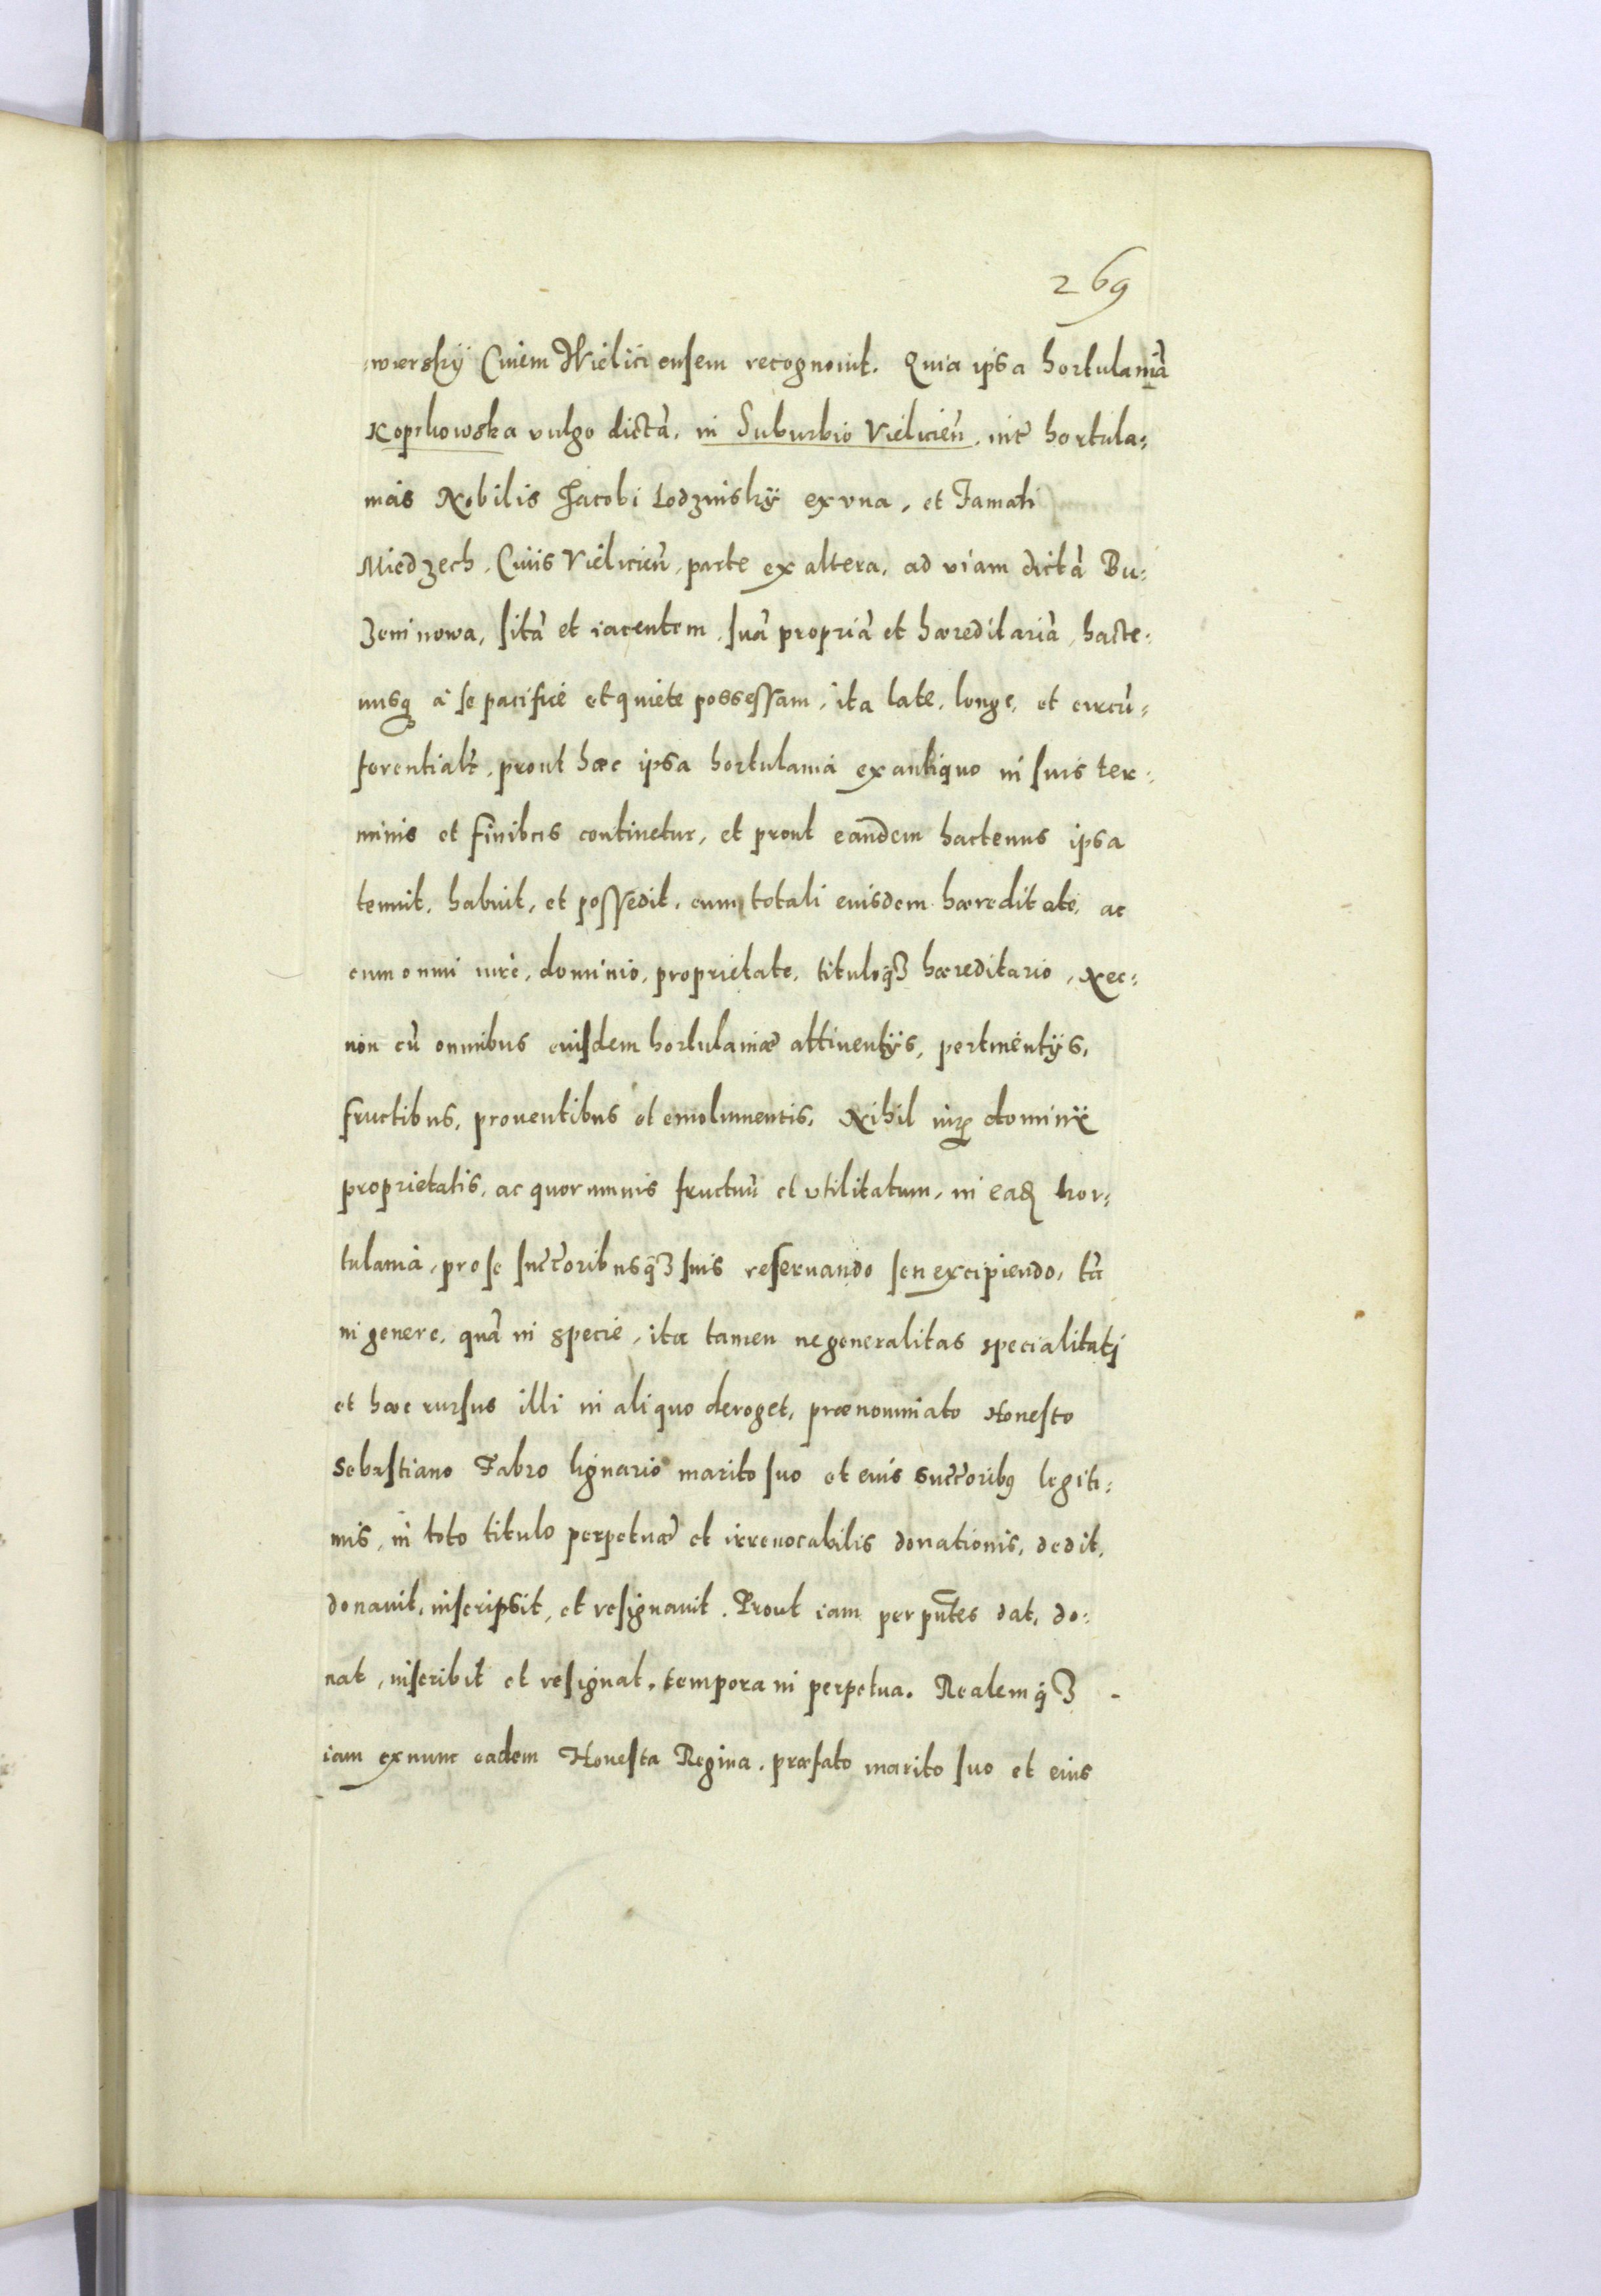 269
wiersky Ciuem Wieliciensem recognouit. Quia ipsa hortulaniã
Kopchowska vulgo dictã, in Suburbio Vielicieñ. inter hortula⸗
nias Nobilis Jacobi Lodzinskÿ ex vna, et Famati
Miedzech, Ciuis Vielicieñ, parte ex altera, ad viam dictã Bu⸗
zeninowa, sitã et iacentem, suã propriã et hæreditariã, hacte⸗
nusq à se pacifice et quiete possessam, ita late, longe, et circũ⸗
ferentialr, prout hæc ipsa hortulania ex antiquo in suis ter⸗
minis et finibus continetur, et prout eandem hactenus ipsa
tenuit, habuit, et possedit, cum totali eiusdem hæreditate, ac
cum omni iure, dominio, proprietate, tituloq3 hæreditario, Nec⸗
non cũ omnibus eiusdem hortulaniæ attinentÿs, pertinentÿs,
fructibus, prouentibus et emolumentis, Nihil iur dominÿ
proprietatis, ac quorumuis fructuũ et vtilitatum, in ead hor⸗
tulania, pro se succoribusq3 suis reseruando seu excipiendo, tã
in genere, quã in specie, ita tamen ne generalitas specialitati
et hæc rursus illi in aliquo deroget, prænominato Honesto
Sebastiano Fabro lignario marito suo et eius succoribus legiti⸗
mis, in toto titulo perpetuæ et irreuocabilis donationis, dedit,
donauit, inscripsit, et resignauit. Prout iam per pntes dat, do⸗
nat, inscribit et resignat, tempora in perpetua. Realemq3
iam ex nunc eadem Honesta Regina, præfato marito suo et eius